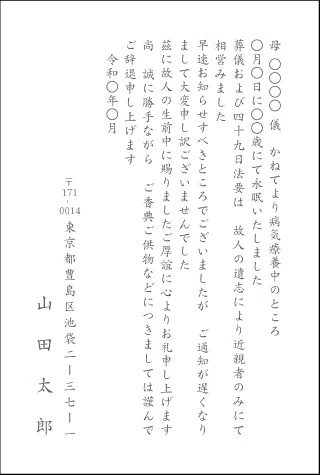 母 〇〇〇〇 儀 かねてより病気療養中のところ
〇月〇日に〇〇歳にて永眠いたしました
葬儀および四十九日法要は 故人の遺志により近親者のみにて
相営みました
早速お知らせすべきところでございましたが ご通知が遅くなり
まして大変申し訳ございませんでした
茲に故人の生前中に賜りましたご厚誼に心よりお礼申し上げます
尚 誠に勝手ながら ご香典ご供物などにつきましては謹んで
ご辞退申し上げます
令和〇年〇月
〒171-0014 東京都豊島区池袋二ー三七ー一
山田太郎